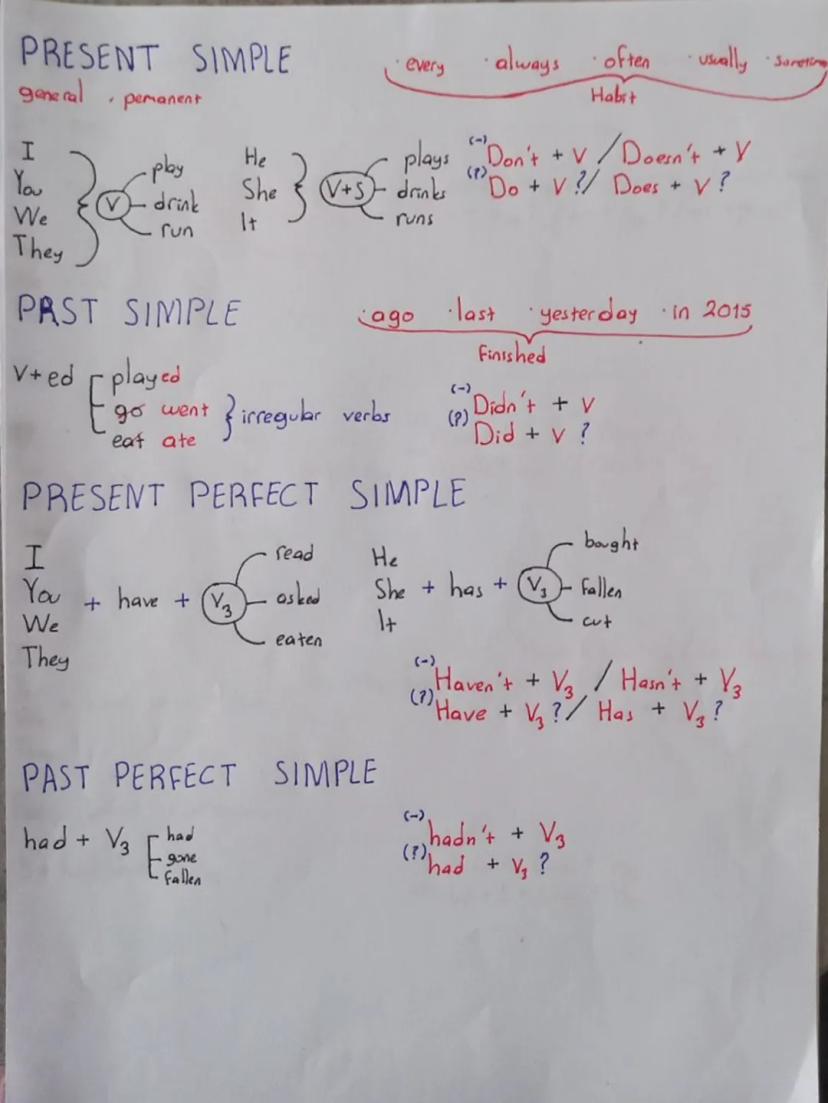 PRESENT SIMPLE
· every · always · often · usually
general , pemanent
Habit
I
You
We
They
V
play
drink
run
He
She
It
V+S
plays
drinks
runs
(-) Don't + V / Doesn't + V
(?) Do + V ? / Does + V ?
PAST SIMPLE
· ago · last · yesterday · in 2015
Finished
V+ed
played
go went
eat ate
irregular verbs
(-) Didn't + V
(?) Did + V ?
PRESENT PERFECT SIMPLE
I
You
We
They
+ have + V3
read
asked
eaten
He
She
It
+ has + V3
bought
fallen
cut
(-) Haven't + V3 / Hasn't + V3
(?) Have + V3 ? / Has + V3 ?
PAST PERFECT SIMPLE
had + V3
had
gone
fallen
(-) hadn't + V3
(?) had + V3 ?